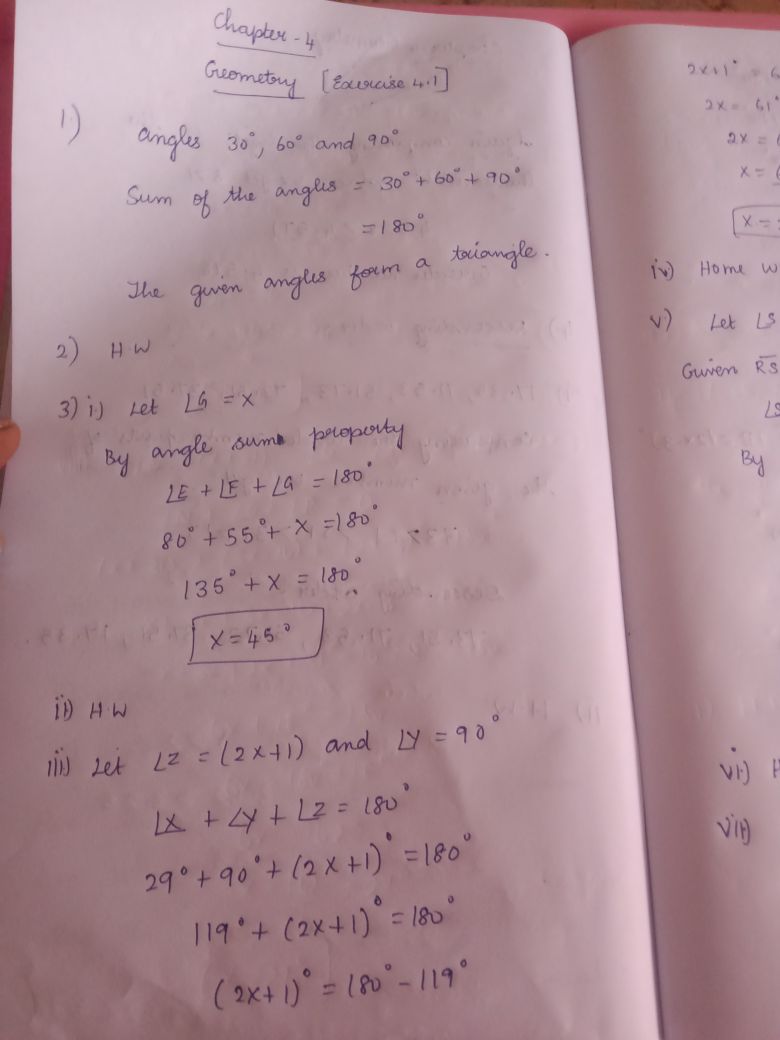 Chapter-4
Geometry [Exercise 4.1]
1) angles 30°, 60° and 90°
Sum of the angles = 30° + 60° + 90°
= 180°
The given angles form a triangle.
2) H.W
3) i) Let ∠G = x
By angle sum property
∠E + ∠F + ∠G = 180°
80° + 55° + x = 180°
135° + x = 180°
x = 45°
ii) H.W
iii) Let ∠Z = (2x+1) and ∠Y = 90°
∠X + ∠Y + ∠Z = 180°
29° + 90° + (2x+1)° = 180°
119° + (2x+1)° = 180°
(2x+1)° = 180° - 119°
2x+1° = 6
2x = 61°
2x = 6
x = 6
x =
iv) Home W
v) Let ∠S
Given RS
∠S
By
vi) H
vii)